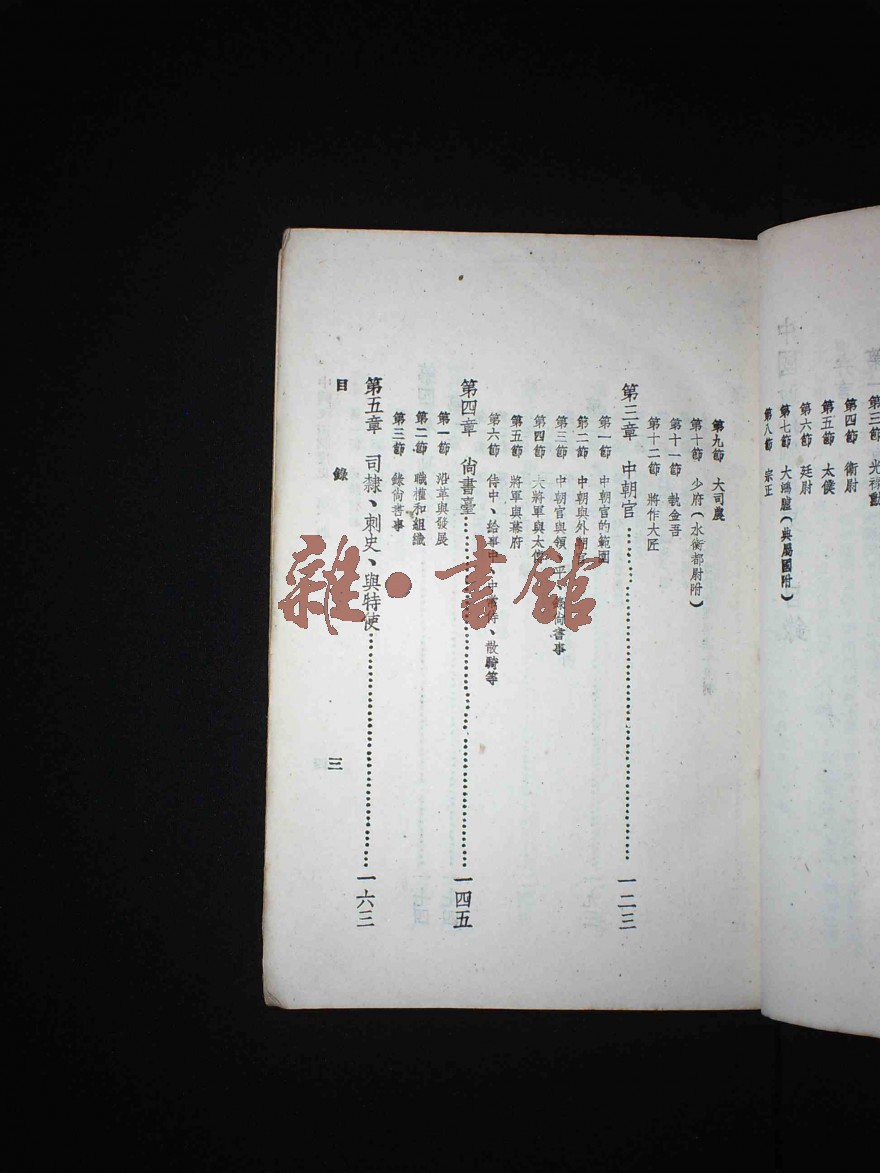 第三節　光祿勳
第四節　衛尉
第五節　太僕
第六節　廷尉
第七節　大鴻臚(典屬國附)
第八節　宗正
第九節　大司農
第十節　少府(水衡都尉附)
第十一節　執金吾
第十二節　將作大匠
第三章　中朝官……一二三
第一節　中朝官的範圍
第二節　中朝與外朝官
第三節　中朝官與領、平、條尙書事
第四節　大將軍與太傅
第五節　將軍與幕府
第六節　侍中、給事中、中常侍、散騎等
第四章　尙書臺……一四五
第一節　沿革與發展
第二節　職權和組織
第三節　錄尙書事
第五章　司隸、刺史、與特使……一六三
目　錄
三
雜·書館